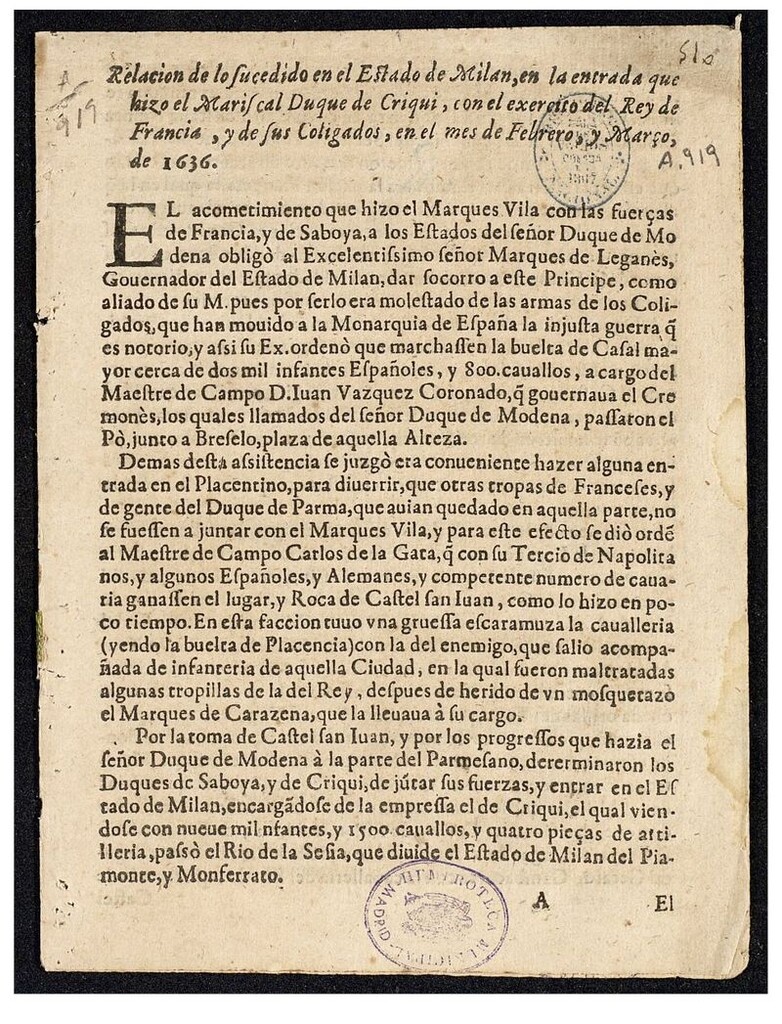 510
A
919
Relacion de lo ſucedido en el Eſtado de Milan, en la entrada que
hizo el Mariſcal Duque de Criqui, con el exercito del Rey de
Francia, y de ſus Coligados, en el mes de Febrero, y Março,
de 1636.
A.919
EL acometimiento que hizo el Marques Vila con las fuerças
de Francia, y de Saboya, a los Eſtados del ſeñor Duque de Mo
dena obligò al Excelentiſsimo ſeñor Marques de Leganès,
Gouernador del Eſtado de Milan, dar ſocorro a eſte Principe, como
aliado de ſu M. pues por ſerlo era moleſtado de las armas de los Coli-
gados, que han mouido a la Monarquia de Eſpaña la injuſta guerra q̃
es notorio, y aſsi ſu Ex. ordenò que marchaſſen la buelta de Caſal ma-
yor cerca de dos mil infantes Eſpañoles, y 800. cauallos, a cargo del
Maeſtre de Campo D. Iuan Vazquez Coronado, q̃ gouernaua el Cre
monès, los quales llamados del ſeñor Duque de Modena, paſſaron el
Pò, junto a Breſelo, plaza de aquella Alteza.
Demas deſta aſsiſtencia ſe juzgò era conueniente hazer alguna en-
trada en el Placentino, para diuertir, que otras tropas de Franceſes, y
de gente del Duque de Parma, que auian quedado en aquella parte, no
ſe fueſſen a juntar con el Marques Vila, y para eſte efecto ſe diò ordẽ
al Maeſtre de Campo Carlos de la Gata, q̃ con ſu Tercio de Napolita
nos, y algunos Eſpañoles, y Alemanes, y competente numero de caua-
ria ganaſſen el lugar, y Roca de Caſtel ſan Iuan, como lo hizo en po-
co tiempo. En eſta faccion tuuo vna grueſſa eſcaramuza la caualleria
(yendo la buelta de Placencia) con la del enemigo, que ſalio acompa-
ñada de infanteria de aquella Ciudad, en la qual fueron maltratadas
algunas tropillas de la del Rey, deſpues de herido de vn moſquetazo
el Marques de Carazena, que la lleuaua à ſu cargo.
Por la toma de Caſtel ſan Iuan, y por los progreſſos que hazia el
ſeñor Duque de Modena à la parte del Parmeſano, determinaron los
Duques de Saboya, y de Criqui, de jũtar sus fuerzas, y entrar en el Eſ
tado de Milan, encargãdoſe de la empreſſa el de Criqui, el qual vien-
doſe con nueue mil nfantes, y 1500. cauallos, y quatro pieças de arti-
lleria, paſsò el Rio de la Seſia, que diuide el Eſtado de Milan del Pia-
monte, y Monferrato.
A El
HEMEROTECA MUNICIPAL
MADRID